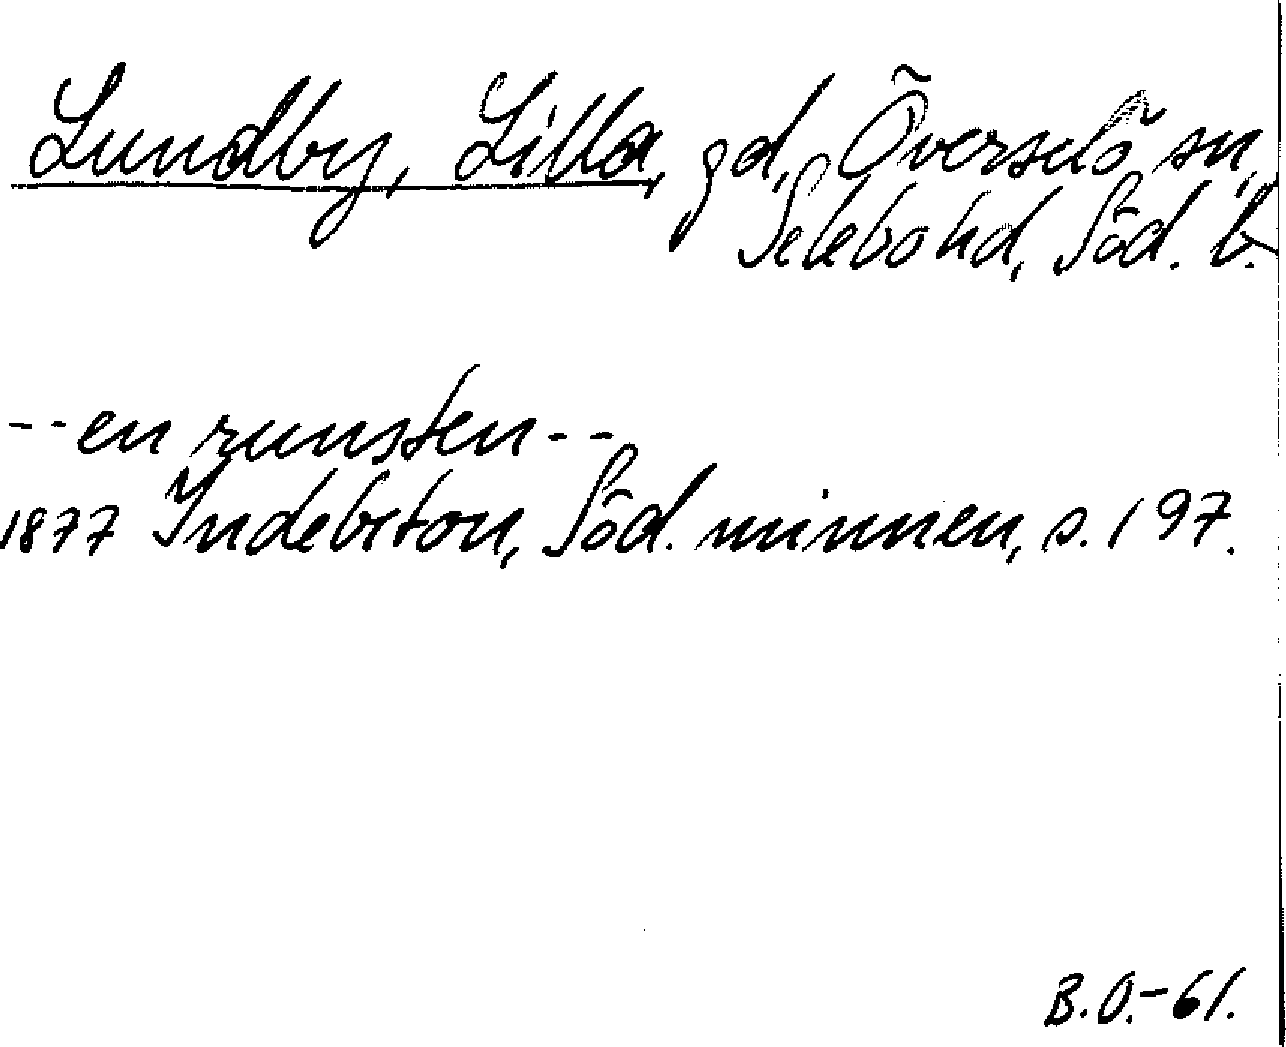 Lundby, Lilla, gd, Överselö sn,
Selebo hd, Söd. l.
--en runsten--
1877 Indebetou, Söd. minnen, s. 197.
B.O.-61.